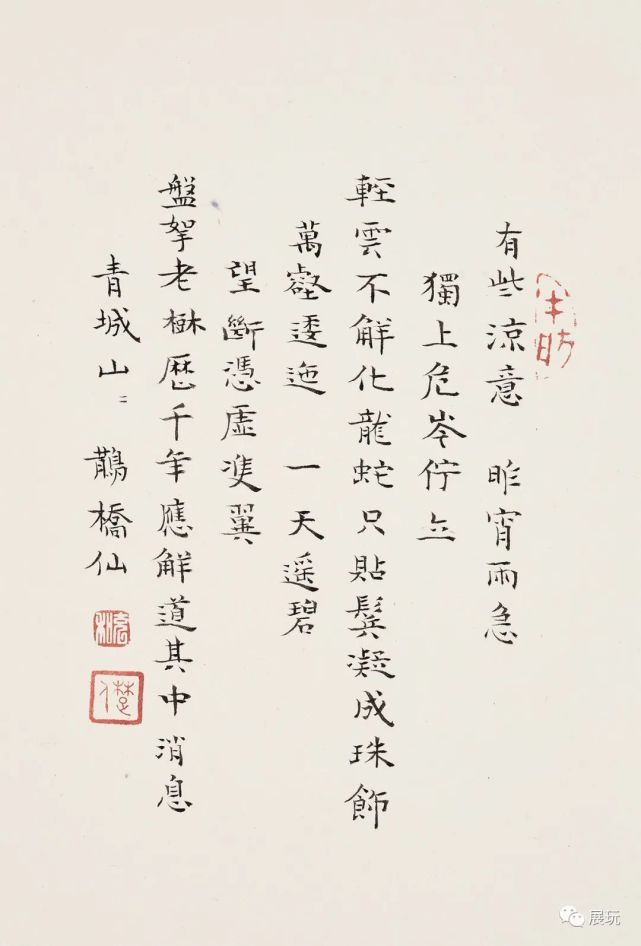 有些涼意 昨宵雨急
獨上危岑佇立
輕雲不解化龍蛇只貼鬢凝成珠飾
萬壑逶迤 一天遥碧
望斷憑虛雙翼
盤挐老樹歷千年應解道其中消息
青城山 鵲橋仙
展玩